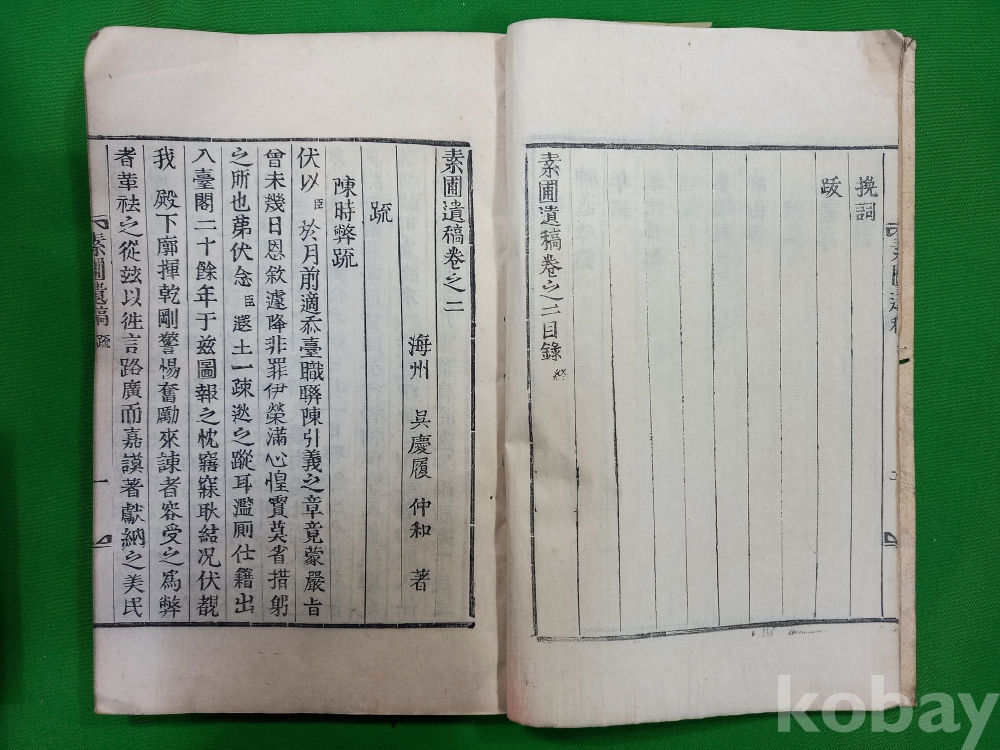 挽詞
跋
素圃遺稿卷之二目錄 終
素圃遺稿卷之二
海州 吳慶履 仲和 著
疏
陳時弊疏
伏以臣於月前適忝臺職聯陳引義之章竟蒙嚴旨
曾未幾日恩敘遽降非罪伊榮滿心惶霣莫省措躬
之所也第伏念臣遐土一疎逖之蹤耳濫厠仕籍出
入臺閣二十餘年于玆圖報之忱寤寐耿結况伏覩
我 殿下廓揮乾剛警惕奮勵來諫者容受之爲弊
者革祛之從玆以徃言路廣而嘉謨著獻納之美民
素圃遺稿 疏 一
kobay